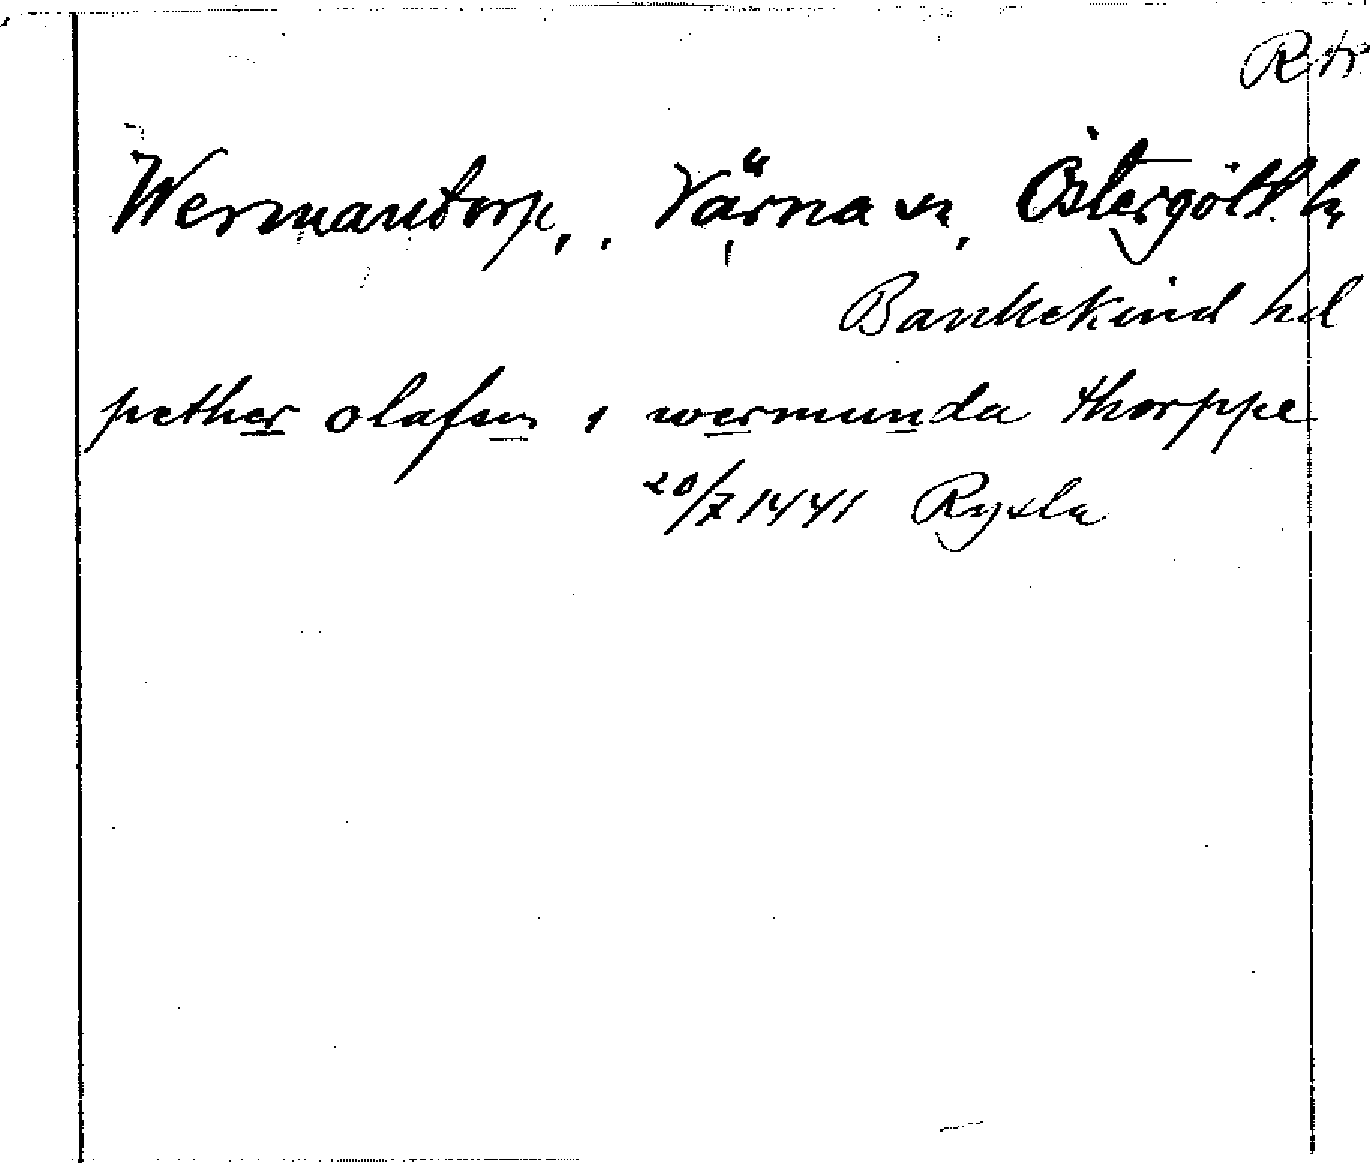 Wermantorp, Värna sn, Östergötl. ln
Bankekind hd
pether olafsen i wermunda thorppe
20/7 1441 Rysla